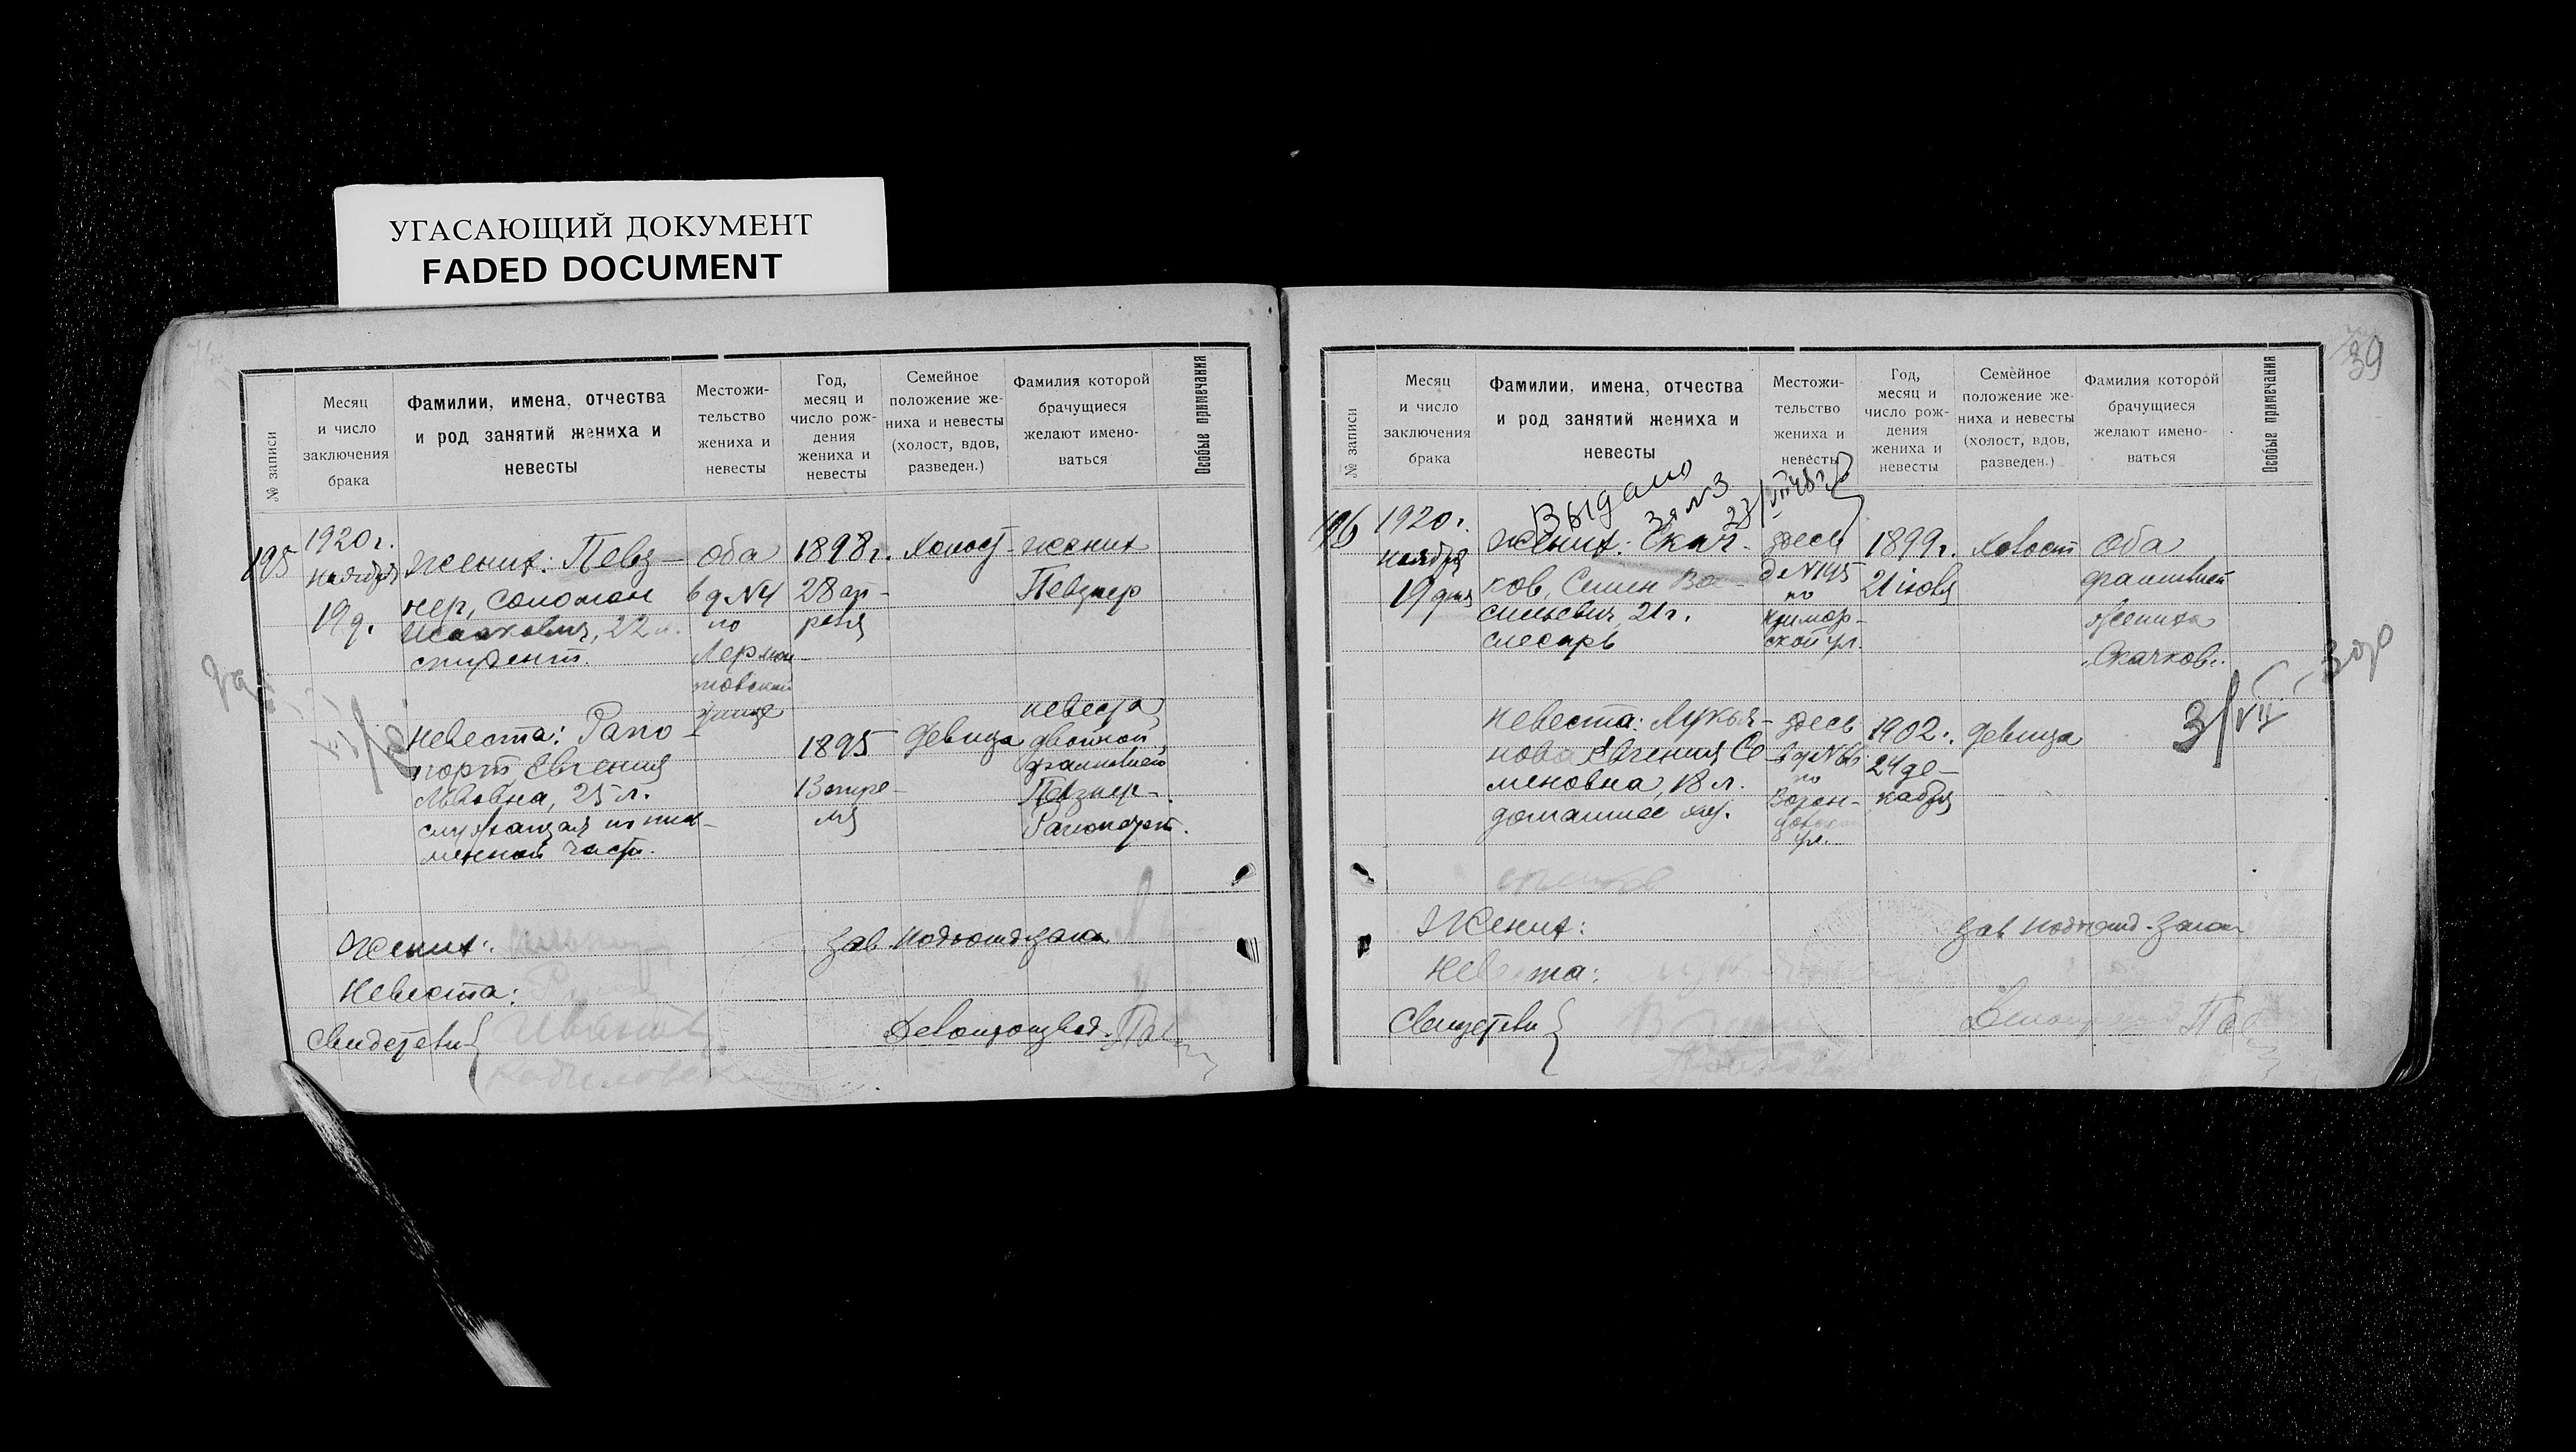 УГАСАЮЩИЙ ДОКУМЕНТ
FADED DOCUMENT
№ записи
Месяц
и число
заключения
брака
Фамилии, имена, отчества
и род занятий жениха и
невесты
Местожи-
тельство
жениха и
невесты
Год,
месяц и
число рож-
дения
жениха и
невесты
Семейное
положение же-
ниха и невесты
(холост, вдов,
разведен.)
Фамилия которой
брачущиеся
желают имено-
ваться
Особые примечания
195
1920 г.
ноября
19 д.
Жених: Певз-
нер, Соломон
Исаакович, 22 л.
студент.
Оба
в д №4
по
Лермон-
товской
улице
1898 г.
28 ап-
реля
Холост
жених
Певзнер
Невеста: Рапо-
порт, Евгения
Львовна, 25 л.
служащая
1895
13 апре-
ля
девица
невеста
двойной
фамилией
Певзнер-
Рапопорт.
Жених:
Невеста:
Свидетели
зав. подотд. запис.
Делопроизвод.
39
№ записи
Месяц
и число
заключения
брака
Фамилии, имена, отчества
и род занятий жениха и
невесты
Местожи-
тельство
жениха и
невесты
Год,
месяц и
число рож-
дения
жениха и
невесты
Семейное
положение же-
ниха и невесты
(холост, вдов,
разведен.)
Фамилия которой
брачущиеся
желают имено-
ваться
Особые примечания
Выдано
за №3
23/VII 48 г.
196
1920 г.
ноября
19 дня
Жених: Скач-
ков, Семен Ва-
сильевич, 21 г.
слесарь
здесь
д №145
по
Кузнар-
ской ул.
1899 г.
21 июля
Холост
Оба
фамилией
жениха
"Скачков".
Невеста: Лукья-
нова Евгения Се-
меновна, 18 л.
домашнее хоз.
здесь
в д №66
по
Ворон-
ул.
1902 г.
24 де-
кабря
девица
3/VII
Жених:
Невеста:
Свидетели
зав. подотд. запис.